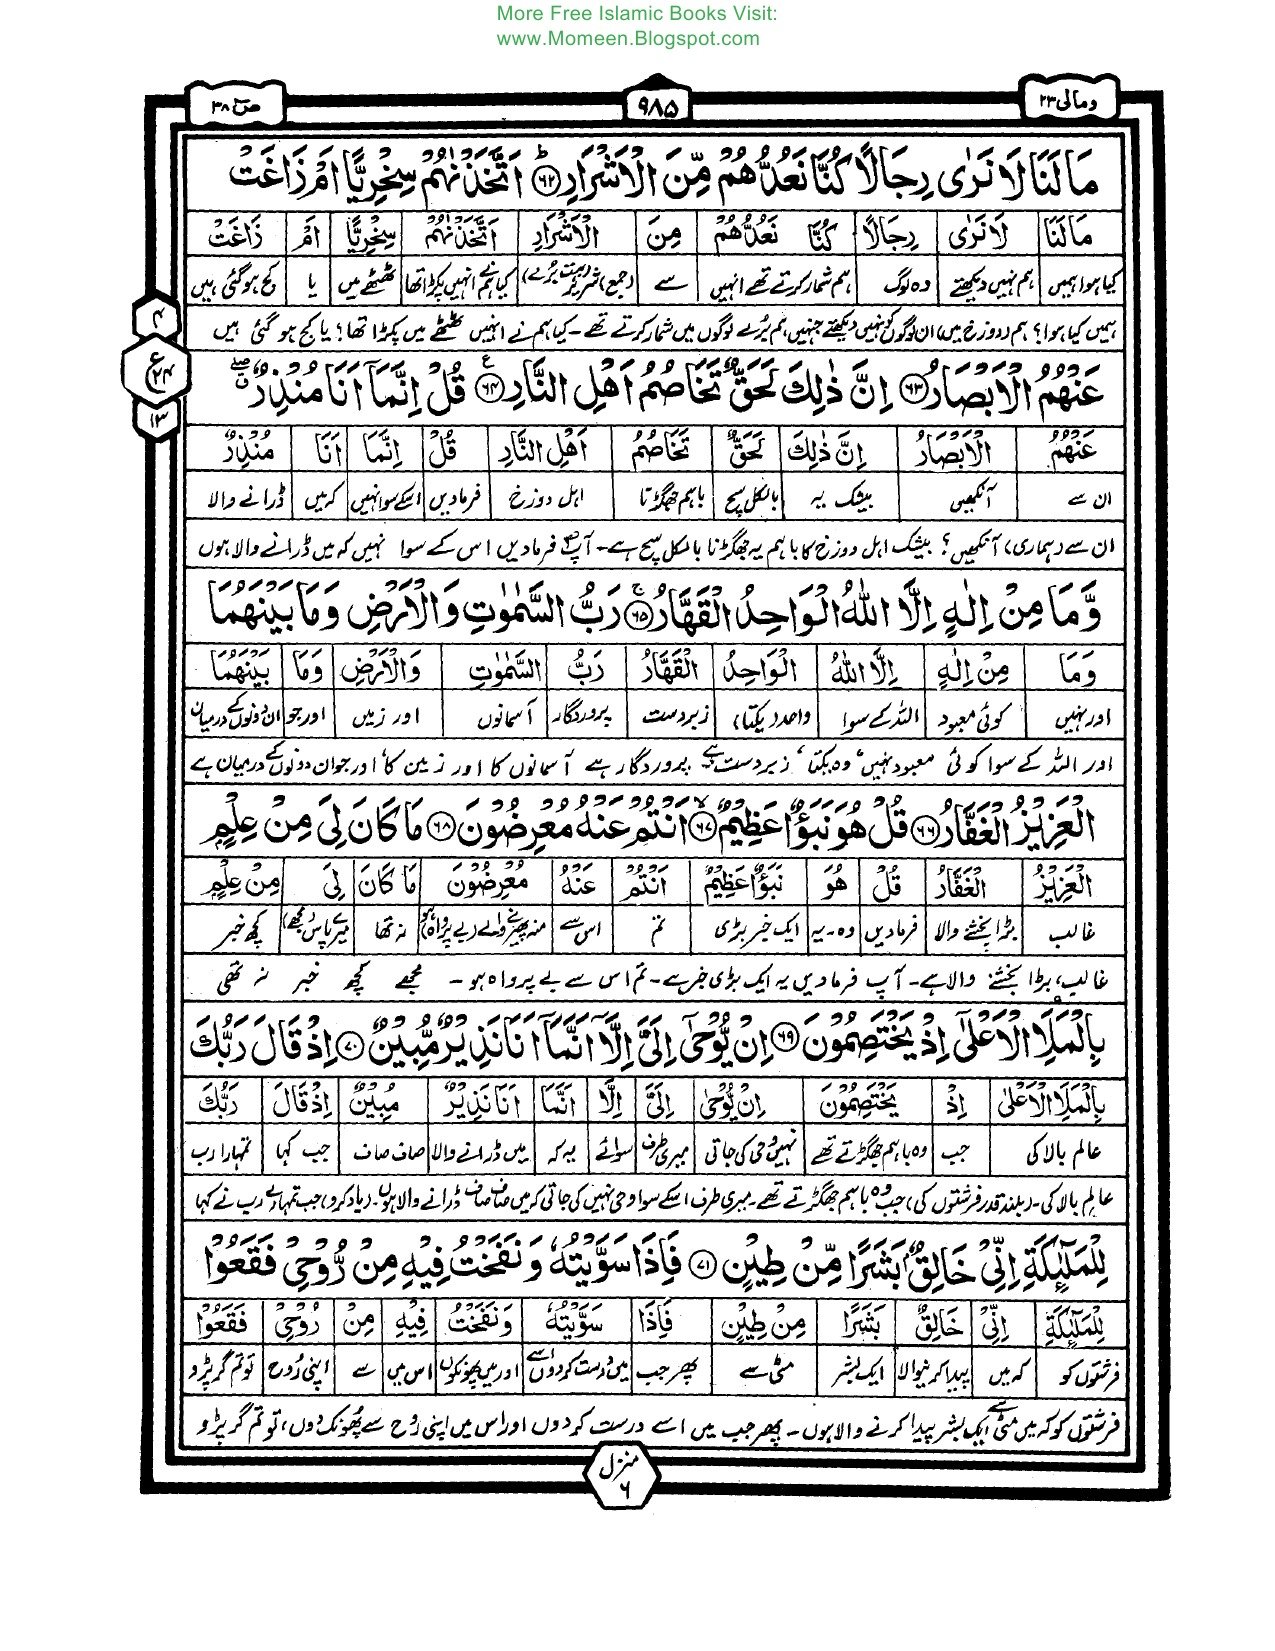 More Free Islamic Books Visit:
www.Momeen.Blogspot.com
ومالی ۲۳
۹۸۵
صٓ ۳۸
مَا لَنَا لَا نَرٰی رِجَالًا کُنَّا نَعُدُّهُمْ مِّنَ الْاَشْرَارِ ۶۲ اَتَّخَذْنٰهُمْ سِخْرِیًّا اَمْ زَاغَتْ
مَا لَنَا لَا نَرٰی رِجَالًا کُنَّا نَعُدُّهُمْ مِنَ الْاَشْرَارِ اَتَّخَذْنٰهُمْ سِخْرِیًّا اَمْ زَاغَتْ
کیا ہوا ہمیں ہم نہیں دیکھتے وہ لوگ ہم شمار کرتے تھے انہیں سے (جمع) شریر (بہت بُرے) کیا ہم نے انہیں پکڑا تھا ٹھٹھے میں یا کج ہو گئی ہیں
ہمیں کیا ہوا؟ ہم (دوزخ میں) ان لوگوں کو نہیں دیکھتے جنہیں ہم بُرے لوگوں میں شمار کرتے تھے۔ کیا ہم نے انہیں ٹھٹھے میں پکڑا تھا؟ یا کج ہو گئی ہیں
۴
ع
۲۴
۱۳
عَنْهُمُ الْاَبْصَارُ ۶۳ اِنَّ ذٰلِكَ لَحَقٌّ تَخَاصُمُ اَهْلِ النَّارِ ۶۴ قُلْ اِنَّمَآ اَنَا مُنْذِرٌ
عَنْهُمُ الْاَبْصَارُ اِنَّ ذٰلِكَ لَحَقٌّ تَخَاصُمُ اَهْلِ النَّارِ قُلْ اِنَّمَا اَنَا مُنْذِرٌ
ان سے آنکھیں بیشک یہ بالکل سچ باہم جھگڑنا اہل دوزخ فرمادیں اسکے سوا نہیں کہ میں ڈرانے والا
ان سے (ہماری) آنکھیں؟ بیشک اہل دوزخ کا باہم یہ جھگڑنا بالکل سچ ہے۔ آپؐ فرمادیں اس کے سوا نہیں کہ میں ڈرانے والا ہوں
وَّمَا مِنْ اِلٰهٍ اِلَّا اللّٰهُ الْوَاحِدُ الْقَهَّارُ ۶۵ رَبُّ السَّمٰوٰتِ وَالْاَرْضِ وَمَا بَيْنَهُمَا
وَمَا مِنْ اِلٰهٍ اِلَّا اللّٰهُ الْوَاحِدُ الْقَهَّارُ رَبُّ السَّمٰوٰتِ وَالْاَرْضِ وَمَا بَيْنَهُمَا
اور نہیں کوئی معبود اللہ کے سوا واحد (یکتا) زبردست پروردگار آسمانوں اور زمین اور جو ان دونوں کے درمیان
اور اللہ کے سوا کوئی معبود نہیں، وہ یکتا، زبردست ہے پروردگار ہے آسمانوں کا اور زمین کا، اور جو ان دونوں کے درمیان ہے
الْعَزِيْزُ الْغَفَّارُ ۶۶ قُلْ هُوَ نَبَؤٌا عَظِيْمٌ ۶۷ اَنْتُمْ عَنْهُ مُعْرِضُوْنَ ۶۸ مَا كَانَ لِیَ مِنْ عِلْمٍ
الْعَزِيْزُ الْغَفَّارُ قُلْ هُوَ نَبَؤٌا عَظِيْمٌ اَنْتُمْ عَنْهُ مُعْرِضُوْنَ مَا كَانَ لِیَ مِنْ عِلْمٍ
غالب بڑا بخشنے والا فرمادیں وہ۔ یہ ایک خبر بڑی تم اس سے منہ پھیرنے والے (بے پرواہ ہو) نہ تھا میرے پاس (مجھے) کچھ خبر
غالب، بڑا بخشنے والا ہے۔ آپؐ فرمادیں یہ ایک بڑی خبر ہے۔ تم اس سے بے پرواہ ہو۔ مجھے کچھ خبر نہ تھی
بِالْمَلَاِ الْاَعْلٰٓی اِذْ يَخْتَصِمُوْنَ ۶۹ اِنْ يُّوْحٰٓی اِلَیَّ اِلَّآ اَنَّمَآ اَنَا نَذِيْرٌ مُّبِيْنٌ ۷۰ اِذْ قَالَ رَبُّكَ
بِالْمَلَاِ الْاَعْلٰی اِذْ يَخْتَصِمُوْنَ اِنْ يُّوْحٰی اِلَیَّ اِلَّا اَنَّمَا اَنَا نَذِيْرٌ مُبِيْنٌ اِذْ قَالَ رَبُّكَ
عالم بالا کی جب وہ باہم جھگڑتے تھے نہیں وحی کی جاتی میری طرف سوائے یہ کہ میں ڈرانے والا صاف صاف جب کہا تمہارا رب
عالم بالا کی۔ (بلند قدر فرشتوں کی) جب وہ باہم جھگڑتے تھے۔ میری طرف اسکے سوا وحی نہیں کی جاتی کہ میں صاف صاف ڈرانے والا ہوں۔ (یاد کرو) جب تمہارے رب نے کہا
لِلْمَلٰٓئِكَةِ اِنِّیْ خَالِقٌۢ بَشَرًا مِّنْ طِيْنٍ ۷۱ فَاِذَا سَوَّيْتُهٗ وَنَفَخْتُ فِيْهِ مِنْ رُّوْحِیْ فَقَعُوْا
لِلْمَلٰٓئِكَةِ اِنِّیْ خَالِقٌ بَشَرًا مِنْ طِيْنٍ فَاِذَا سَوَّيْتُهٗ وَنَفَخْتُ فِيْهِ مِنْ رُوْحِیْ فَقَعُوْا
فرشتوں کو کہ میں پیدا کرنیوالا ایک بشر مٹی سے پھر جب میں درست کردوں اسے اور میں پھونکوں اس میں سے اپنی رُوح تو تم گر پڑو
فرشتوں کو کہ میں مٹی سے ایک بشر پیدا کرنے والا ہوں۔ پھر جب میں اسے درست کردوں اور اس میں اپنی روح سے پُھونک دوں، تو تم گر پڑو
منزل
۶